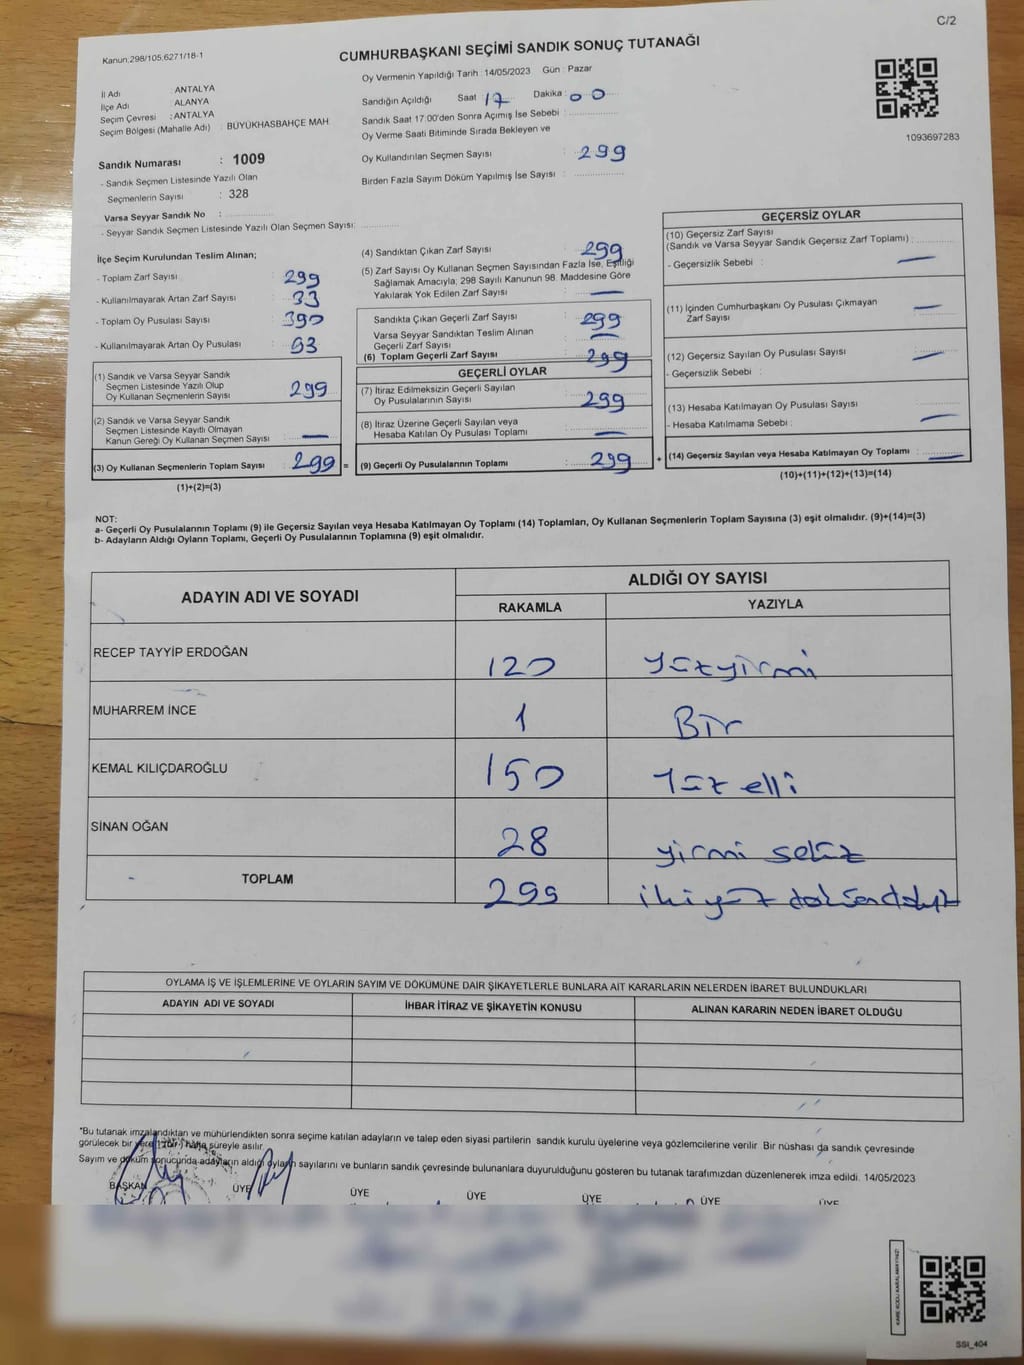 C/2
Kanun,298/105,6271/18-1
CUMHURBAŞKANI SEÇİMİ SANDIK SONUÇ TUTANAĞI
Oy Vermenin Yapıldığı Tarih : 14/05/2023 Gün : Pazar
İl Adı : ANTALYA
İlçe Adı : ALANYA
Seçim Çevresi : ANTALYA
Seçim Bölgesi (Mahalle Adı) : BÜYÜKHASBAHÇE MAH.
Sandığın Açıldığı Saat : 17 Dakika : 00
Sandık Saat 17.00'den Sonra Açımış İse Sebebi :
Oy Verme Saati Bitiminde Sırada Bekleyen ve
Oy Kullandırılan Seçmen Sayısı : 299
Birden Fazla Sayım Döküm Yapılmış İse Sayısı :
1093697283
Sandık Numarası : 1009
- Sandık Seçmen Listesinde Yazılı Olan
Seçmenlerin Sayısı : 328
Varsa Seyyar Sandık No :
- Seyyar Sandık Seçmen Listesinde Yazılı Olan Seçmen Sayısı:
İlçe Seçim Kurulundan Teslim Alınan;
- Toplam Zarf Sayısı : 299
- Kullanılmayarak Artan Zarf Sayısı : 33
- Toplam Oy Pusulası Sayısı : 390
- Kullanılmayarak Artan Oy Pusulası : 93
(1) Sandık ve Varsa Seyyar Sandık
Seçmen Listesinde Yazılı Olup
Oy Kullanan Seçmenlerin Sayısı : 299
(2) Sandık ve Varsa Seyyar Sandık
Seçmen Listesinde Kayıtlı Olmayan
Kanun Gereği Oy Kullanan Seçmen Sayısı : —
(3) Oy Kullanan Seçmenlerin Toplam Sayısı : 299 =
(1)+(2)=(3)
(4) Sandıktan Çıkan Zarf Sayısı : 299
(5) Zarf Sayısı Oy Kullanan Seçmen Sayısından Fazla İse, Eşitliği
Sağlamak Amacıyla; 298 Sayılı Kanunun 98. Maddesine Göre
Yakılarak Yok Edilen Zarf Sayısı : —
Sandıkta Çıkan Geçerli Zarf Sayısı : 299
Varsa Seyyar Sandıktan Teslim Alınan
Geçerli Zarf Sayısı : —
(6) Toplam Geçerli Zarf Sayısı : 299
GEÇERLİ OYLAR
(7) İtiraz Edilmeksizin Geçerli Sayılan
Oy Pusulalarının Sayısı : 299
(8) İtiraz Üzerine Geçerli Sayılan veya
Hesaba Katılan Oy Pusulası Toplamı : —
(9) Geçerli Oy Pusulalarının Toplamı : 299 +
GEÇERSİZ OYLAR
(10) Geçersiz Zarf Sayısı
(Sandık ve Varsa Seyyar Sandık Geçersiz Zarf Toplamı) :
- Geçersizlik Sebebi : —
(11) İçinden Cumhurbaşkanı Oy Pusulası Çıkmayan
Zarf Sayısı : —
(12) Geçersiz Sayılan Oy Pusulası Sayısı : —
- Geçersizlik Sebebi :
(13) Hesaba Katılmayan Oy Pusulası Sayısı :
- Hesaba Katılmama Sebebi : —
(14) Geçersiz Sayılan veya Hesaba Katılmayan Oy Toplamı : —
(10)+(11)+(12)+(13)=(14)
NOT:
a- Geçerli Oy Pusulalarının Toplamı (9) ile Geçersiz Sayılan veya Hesaba Katılmayan Oy Toplamı (14) Toplamları, Oy Kullanan Seçmenlerin Toplam Sayısına (3) eşit olmalıdır. (9)+(14)=(3)
b- Adayların Aldığı Oyların Toplamı, Geçerli Oy Pusulalarının Toplamına (9) eşit olmalıdır.
ADAYIN ADI VE SOYADI ALDIĞI OY SAYISI
RAKAMLA YAZIYLA
RECEP TAYYİP ERDOĞAN 120 Yüzyirmi
MUHARREM İNCE 1 Bir
KEMAL KILIÇDAROĞLU 150 Yüz elli
SİNAN OĞAN 28 yirmi sekiz
TOPLAM 299 ikiyüz doksandokuz
OYLAMA İŞ VE İŞLEMLERİNE VE OYLARIN SAYIM VE DÖKÜMÜNE DAİR ŞİKAYETLERLE BUNLARA AİT KARARLARIN NELERDEN İBARET BULUNDUKLARI
ADAYIN ADI VE SOYADI İHBAR İTİRAZ VE ŞİKAYETİN KONUSU ALINAN KARARIN NEDEN İBARET OLDUĞU
*Bu tutanak imzalandıktan ve mühürlendikten sonra seçime katılan adayların ve talep eden siyasi partilerin sandık kurulu üyelerine veya gözlemcilerine verilir Bir nüshası da sandık çevresinde
görülecek bir yere 1 (bir) hafta süreyle asılır.
Sayım ve döküm sonucunda adayların aldığı oyların sayılarını ve bunların sandık çevresinde bulunanlara duyurulduğunu gösteren bu tutanak tarafımızdan düzenlenerek imza edildi. 14/05/2023
BAŞKAN ÜYE ÜYE ÜYE ÜYE ÜYE ÜYE
SSI_404